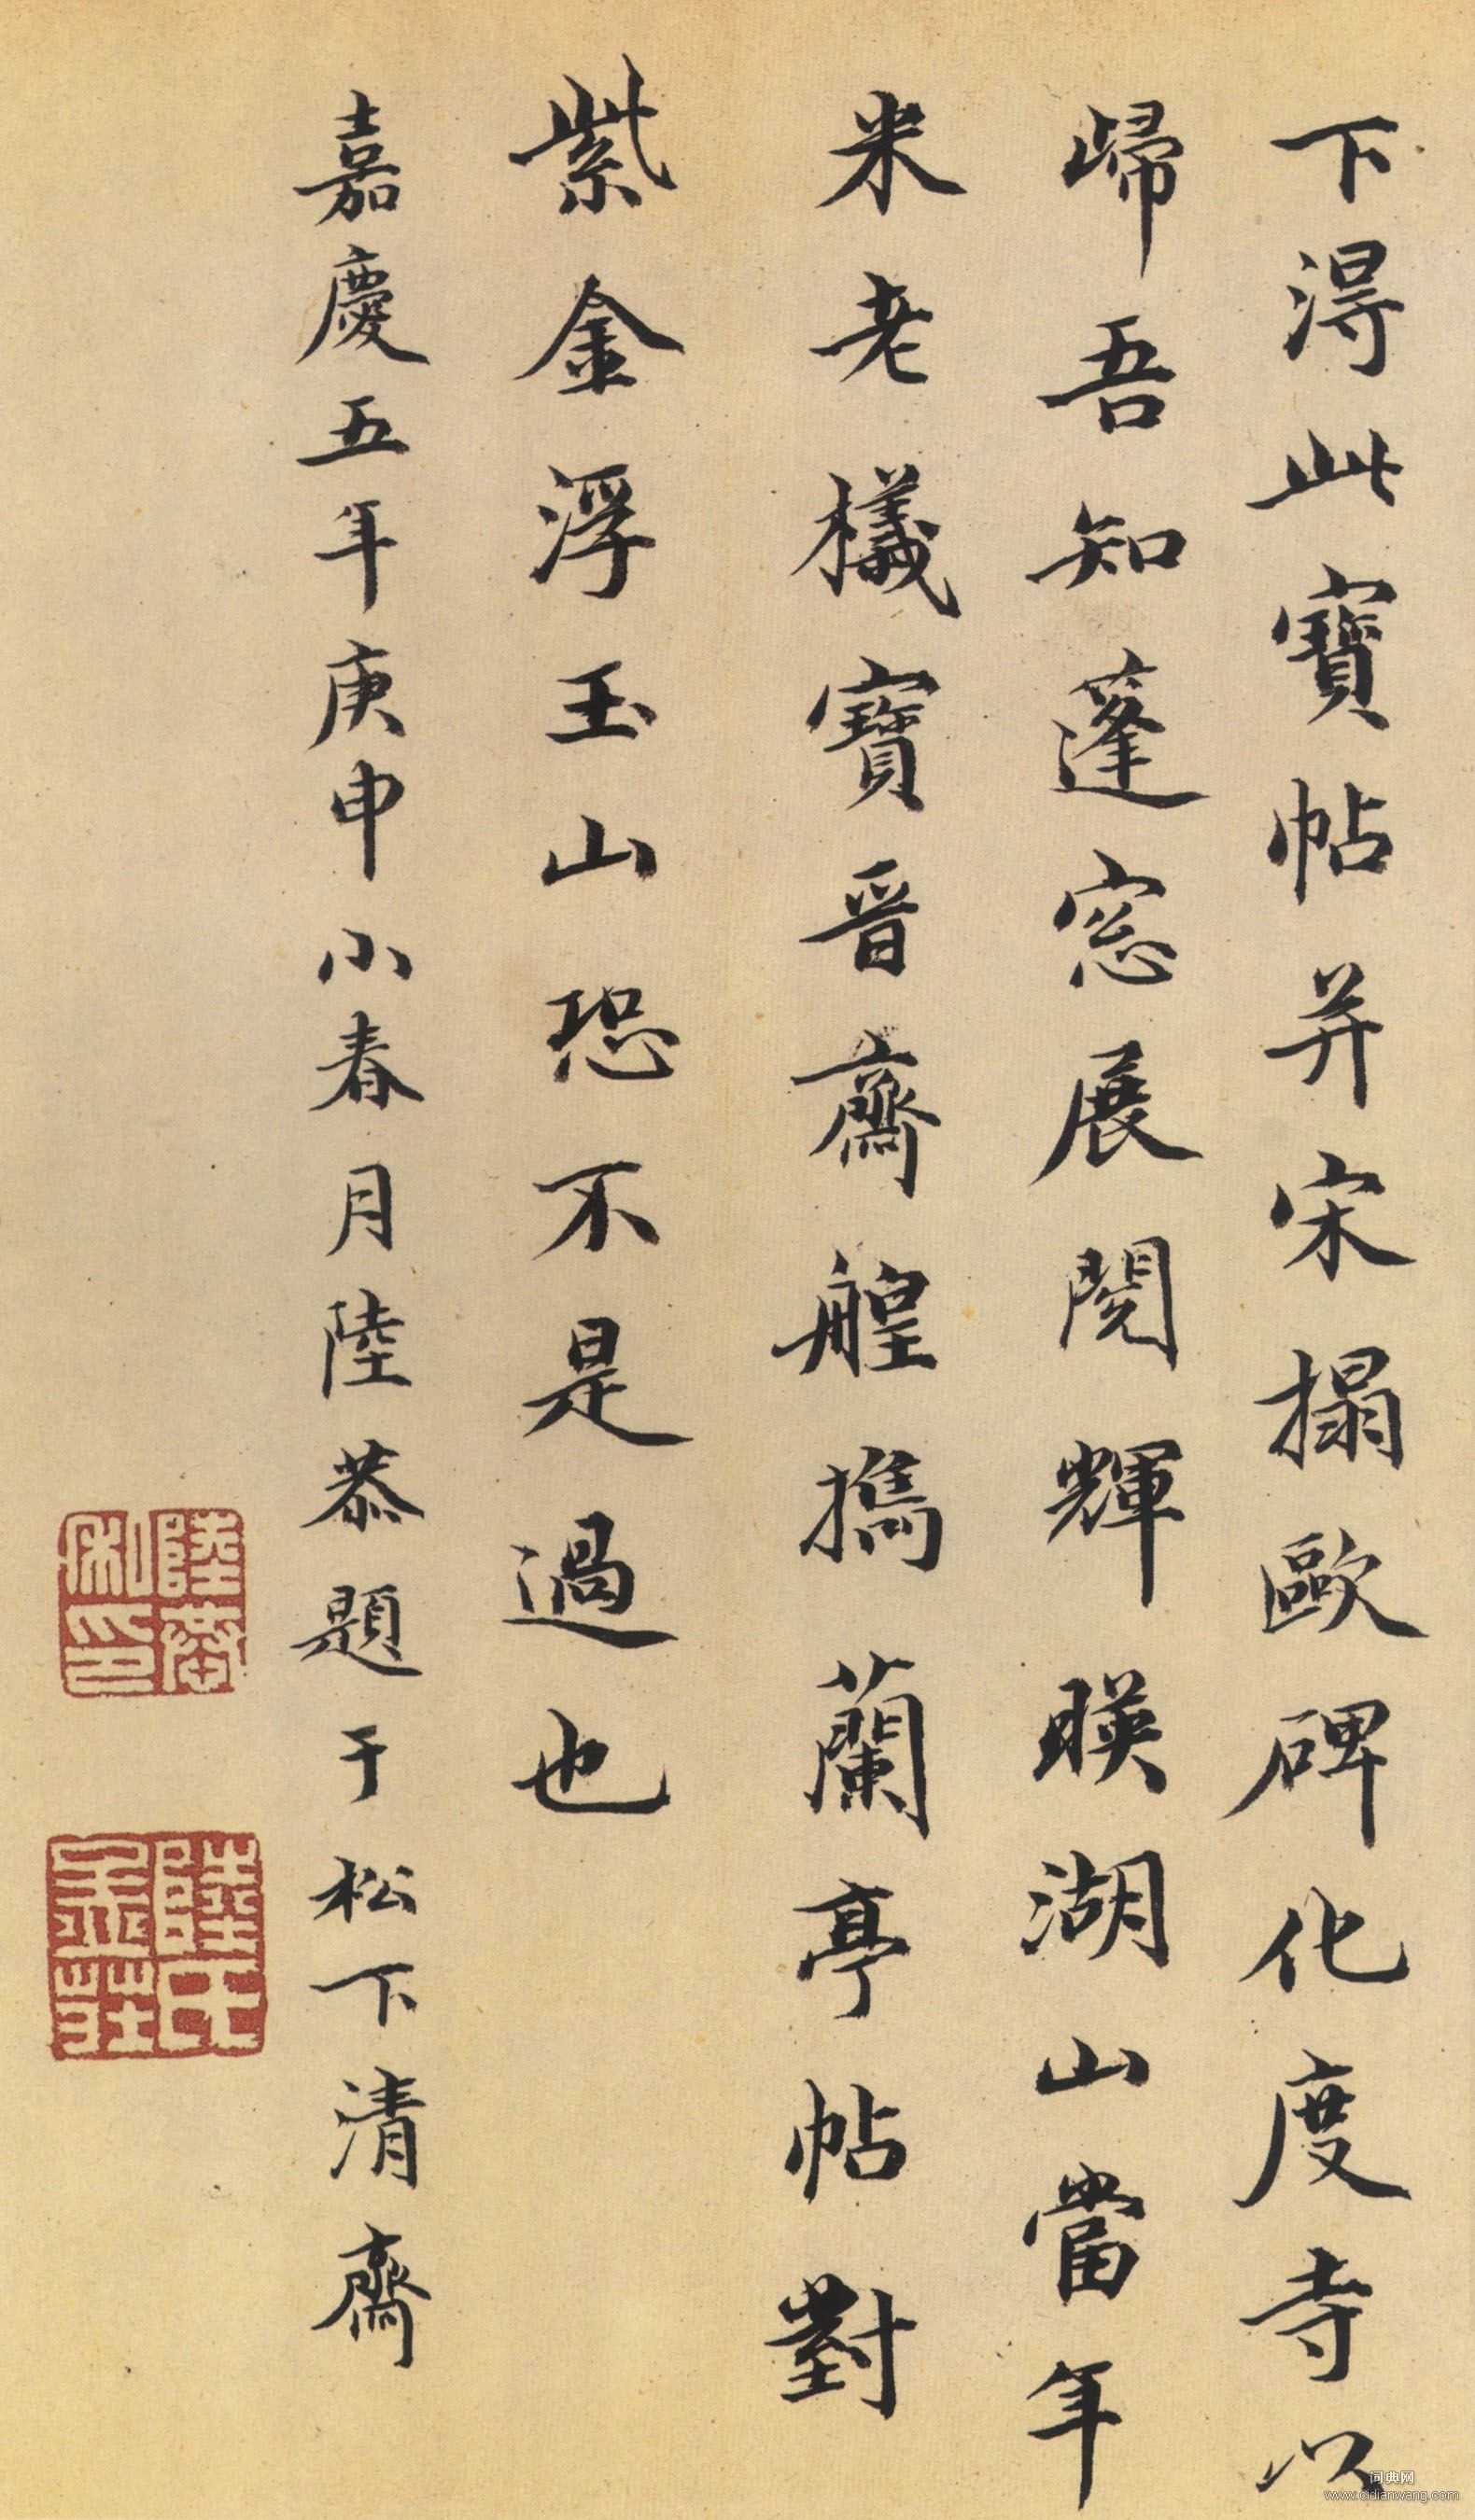 下得此寶帖并宋搨歐碑化度寺以
歸吾知蓬窓展閱輝暎湖山當年
米老檥寶晉齋艎攜蘭亭帖對
紫金浮玉山恐不是過也
嘉慶五年庚申小春月陸恭題于松下清齋
陸恭私印
陸氏
詞典网
www.cidianwang.com